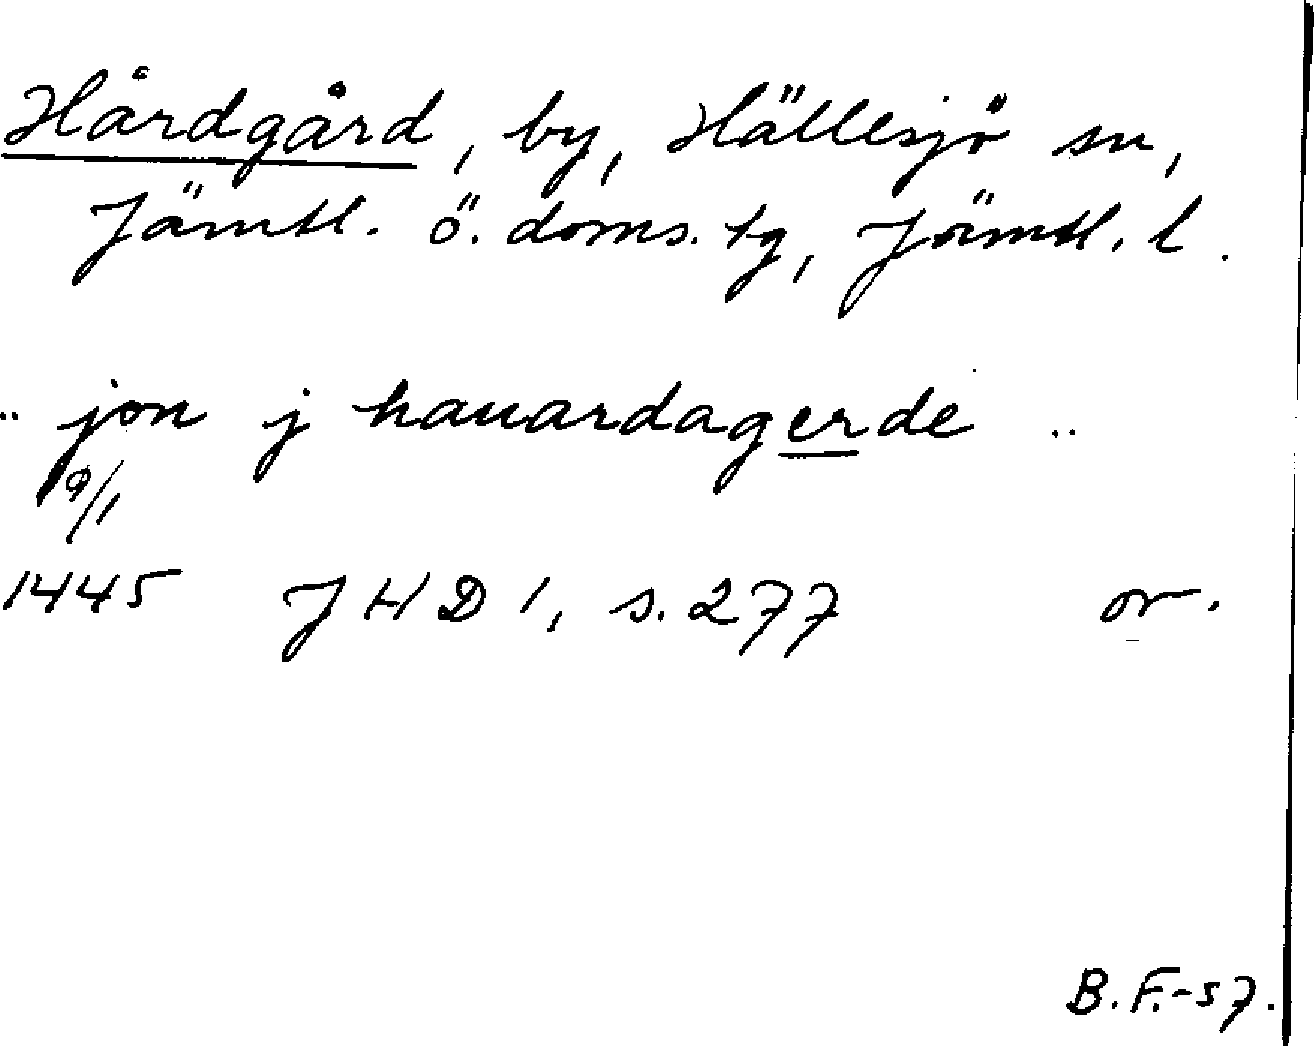 Hårdgård, by, Hällesjö sn,
Jämtl. ö. doms. tg, Jämtl. l.
.. jon j hauardagerde ..
9/1
1445 JHD 1, s. 277 or.
B. F.-57.